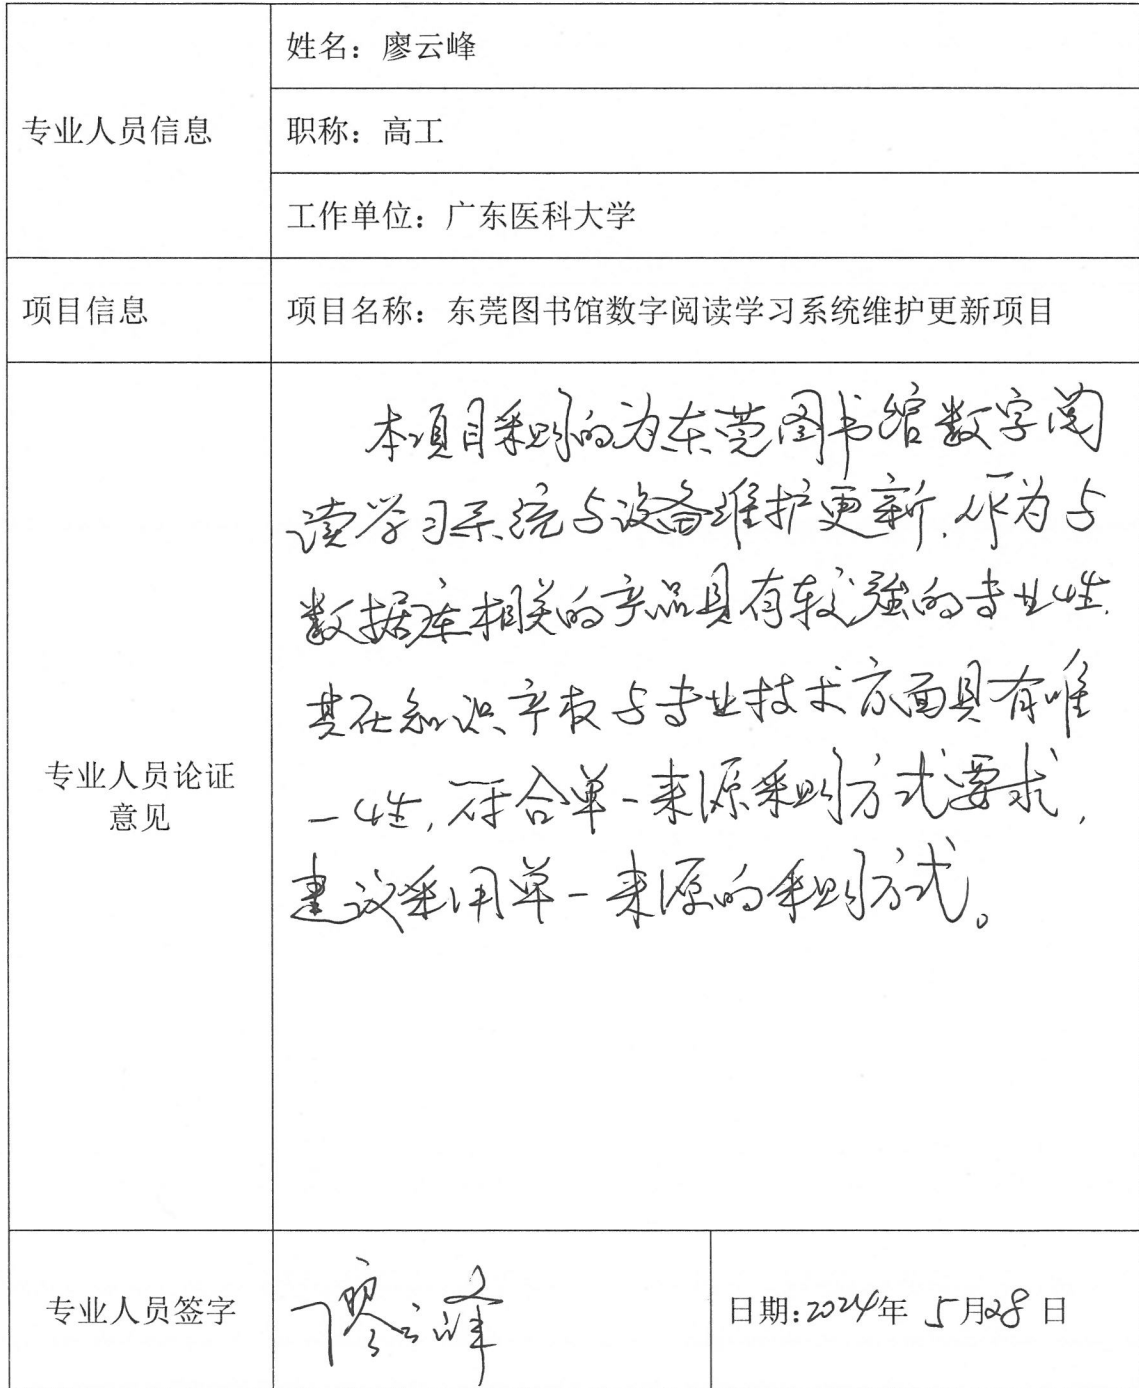 姓名：廖云峰
专业人员信息
职称：高工
工作单位：广东医科大学
项目信息
项目名称：东莞图书馆数字阅读学习系统维护更新项目
本项目采购的为东莞图书馆数字阅
读学习系统与设备维护更新，作为与
数据库相关的产品具有较强的专业性，
其在知识产权与专业技术方面具有唯
一性，符合单一来源采购方式要求，
建议采用单一来源的采购方式。
专业人员论证
意见
专业人员签字
廖云峰
日期：2024年 5月28日